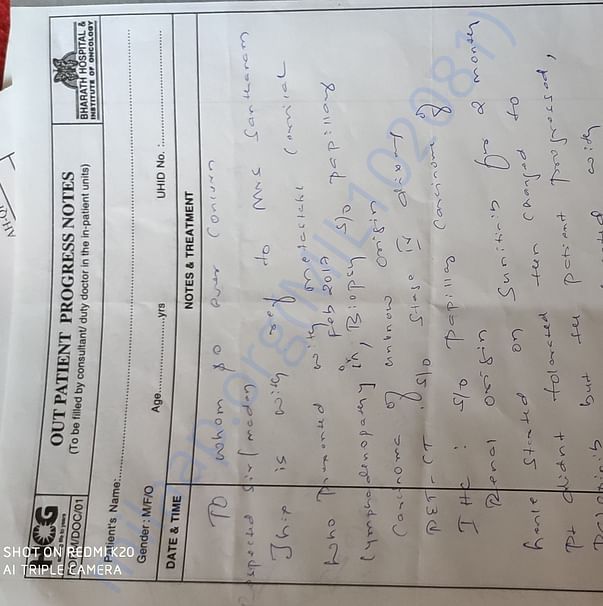 HCG
FORM/DOC/01
OUT PATIENT PROGRESS NOTES
(To be filled by consultant/ duty doctor in the in-patient units)
BHARATH HOSPITAL &
INSTITUTE OF ONCOLOGY
Patient's Name:
Gender: M/F/O Age yrs UHID No. :
DATE & TIME NOTES & TREATMENT
To whom so ever concern
Respected Sir/madam
This is with ref to Mrs Santharam
who presented with metastatic cervical
lymphadenopathy in Feb 2019 Biopsy S/o papillary
Carcinoma of unknow origin
PET-CT S/o Stage IV disease
IHC : S/o papillary carcinoma of
Renal origin
hence Started on Sunitinib for 2 month
Pt didnt tolerated then changed to
but the patient progressed,
with
milaap.org(MIL102081)
SHOT ON REDMI K20
AI TRIPLE CAMERA